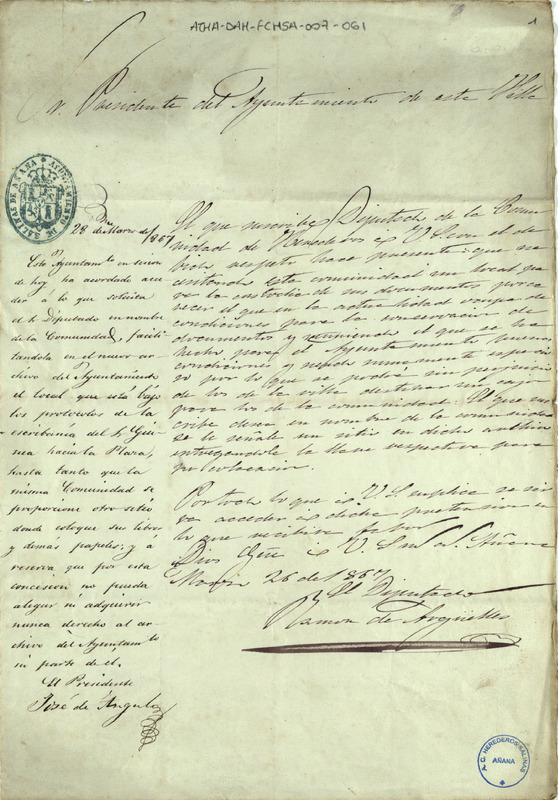 ATHA-DAH-FCHSA-007-061
1
Sr. Presidente del Ayuntamiento de esta Villa
SALINAS DE AÑANA
28 de Marzo de 1867
Este Ayuntamto en sesion
de hoy ha acordado acce
der a lo que solicita
el Sr Diputado en nombre
de la Comunidad, facili
tandola en el nuevo ar
chivo del Ayuntamiento
el local que está bajo
los protocolos de la
escribania del Sr Gui
nea hacia la Plaza,
hasta tanto que la
misma Comunidad se
proporcione otro sitio
donde coloque sus libros
y demás papeles; y á
reserva que por esta
concesion no pueda
alegar ni adquirir
nunca derecho al ar
chivo del Ayuntamto
ni parte de el.
El Presidente
José de Angulo
El que suscribe Diputado de la Comu
nidad de Herederos á V.S. con el de
bido respeto hace presente: que ne
cesitando esta comunidad un local pa
ra la custodia de sus documentos por ca
recer el que en la actualidad ocupa de
condiciones para la conservacion de
documentos y reuniendo el que se ha
hecho para el Ayuntamiento buenas
condiciones y siendo sumamente espacio
so por lo que se podrá sin perjuicio
de los de la villa destinar un cajon
para los de la comunidad. El que sus
cribe desea en nombre de la comunidad
se le señale un sitio en dicho archivo
entregandole la llave respectiva para
su colocacion.
Por todo lo que á V.S. suplica se sir
va acceder á dicha pretension en
lo que recibirá favor
Dios Gue á V.S. m. a. Añana
Marzo 26 de 1867
El Diputado
Ramon de Arguelles
HEREDEROS SALINAS
AÑANA